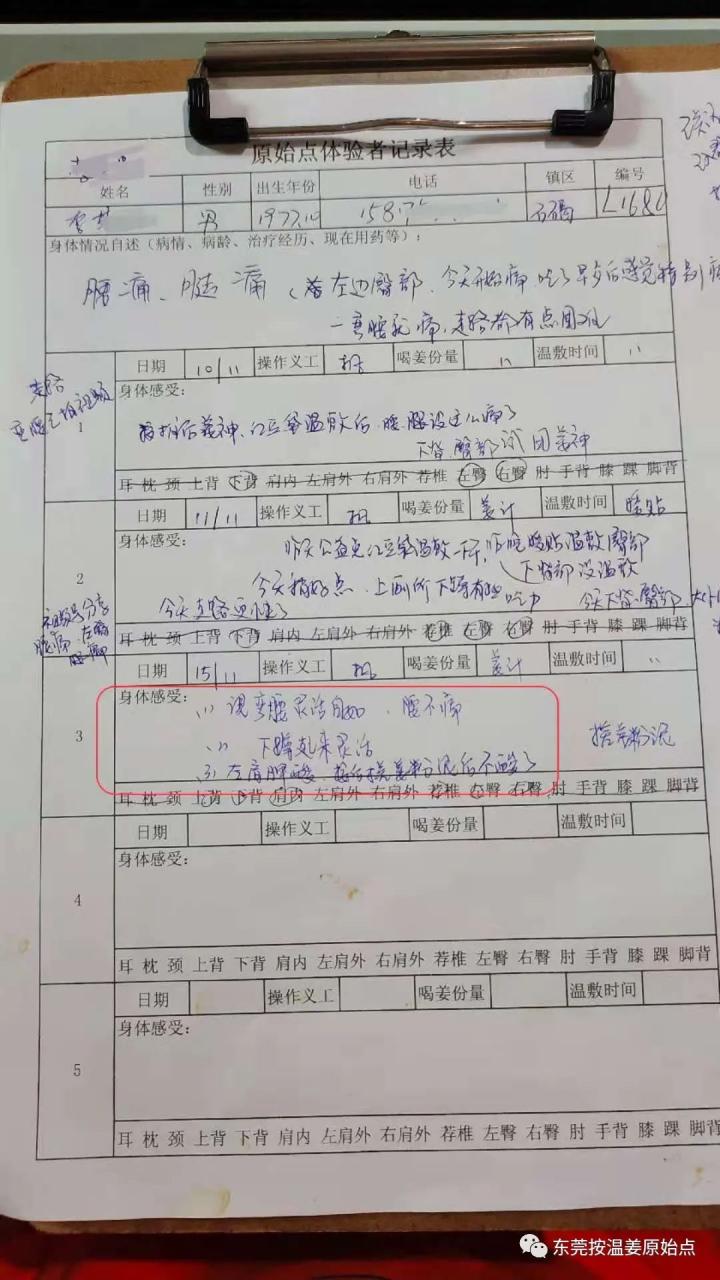 原始点体验者记录表
姓名 性别 出生年份 电话 镇区 编号
男 1977.10 158 石碣 L1680
身体情况自述（病情、病龄、治疗经历、现在用药等）：
腰痛、腿痛（着左边臀部、今天开始痛
一弯腰就痛，走路都有点困难
日期 10/11 操作义工 喝姜份量 〃 温敷时间 〃
走路
1
身体感受：
红豆袋温敷后，腰、腿没这么痛了
下背、臀部
耳 枕 颈 上背 下背 肩内 左肩外 右肩外 荐椎 左臀 右臀 肘 手背 膝 踝 脚背
日期 11/11 操作义工 喝姜份量 姜汁 温敷时间 暖贴
2
身体感受：
昨天公益点红豆袋温敷一下午，昨晚暖贴温敷臀部
下背部没温敷
今天稍好点，上厕所下蹲有些吃力
今天走路更快了
今天下背、臀部
耳 枕 颈 上背 下背 肩内 左肩外 右肩外 荐椎 左臀 右臀 肘 手背 膝 踝 脚背
日期 15/11 操作义工 喝姜份量 姜汁 温敷时间 〃
3
身体感受：
(1) 说弯腰灵活自如、腰不痛
(2) 下蹲起来灵活
(3) 左肩胛酸、按后搓姜粉泥后不酸了
搓姜粉泥
耳 枕 颈 上背 下背 肩内 左肩外 右肩外 荐椎 左臀 右臀 肘 手背 膝 踝 脚背
日期 操作义工 喝姜份量 温敷时间
4
身体感受：
耳 枕 颈 上背 下背 肩内 左肩外 右肩外 荐椎 左臀 右臀 肘 手背 膝 踝 脚背
日期 操作义工 喝姜份量 温敷时间
5
身体感受：
耳 枕 颈 上背 下背 肩内 左肩外 右肩外 荐椎 左臀 右臀 肘 手背 膝 踝 脚背
东莞按温姜原始点